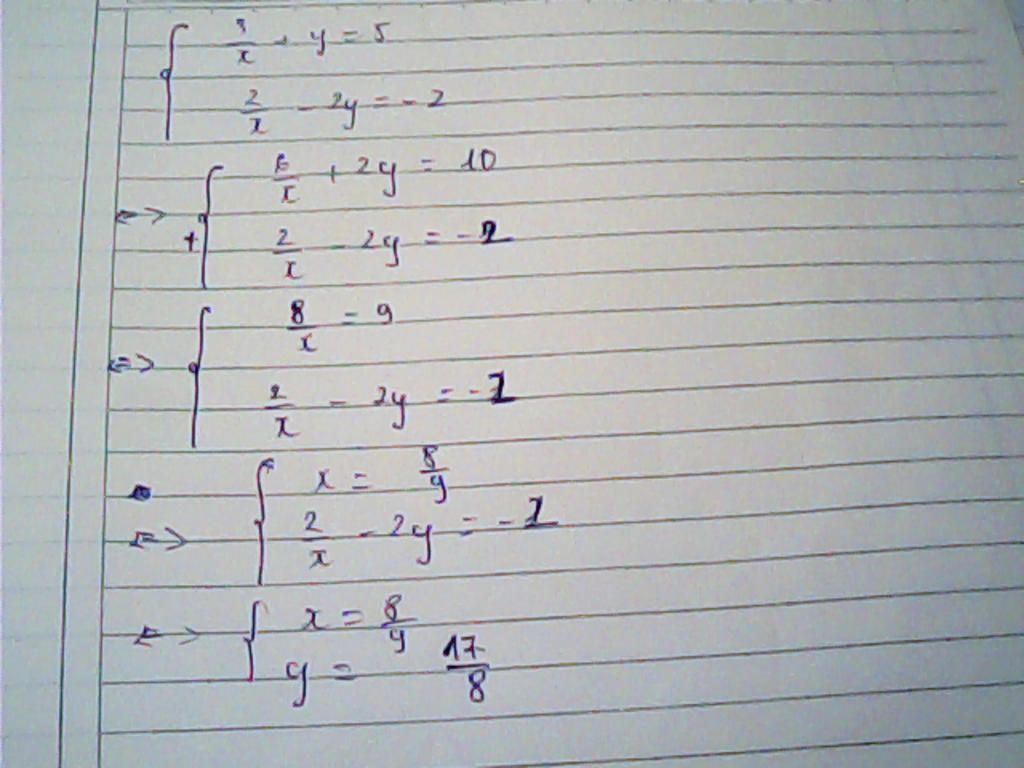 3/x + y = 5
2/x - 2y = -2
<=> 6/x + 2y = 10
+ 2/x - 2y = -1
<=> 8/x = 9
2/x - 2y = -1
x = 8/9
<=> 2/x - 2y = -1
<=> x = 8/9
y = 17/8